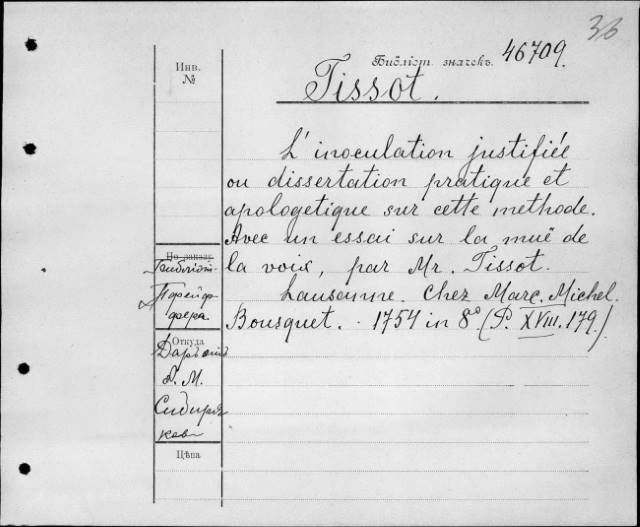 36
Инв.
№
Библіот. значекъ. 46709.
Tissot.
L'inoculation justifiée
ou dissertation pratique et
apologetique sur cette methode.
Avec un essai sur la muë de
la voix, par Mr. Tissot.
Lausanne. Chez Marc. Michel.
Bousquet. - 1754 in 8° (P. XVIII. 179.)
По заказу
Библіот.
Откуда
Даръ
Сибиря-
кова
Цѣна